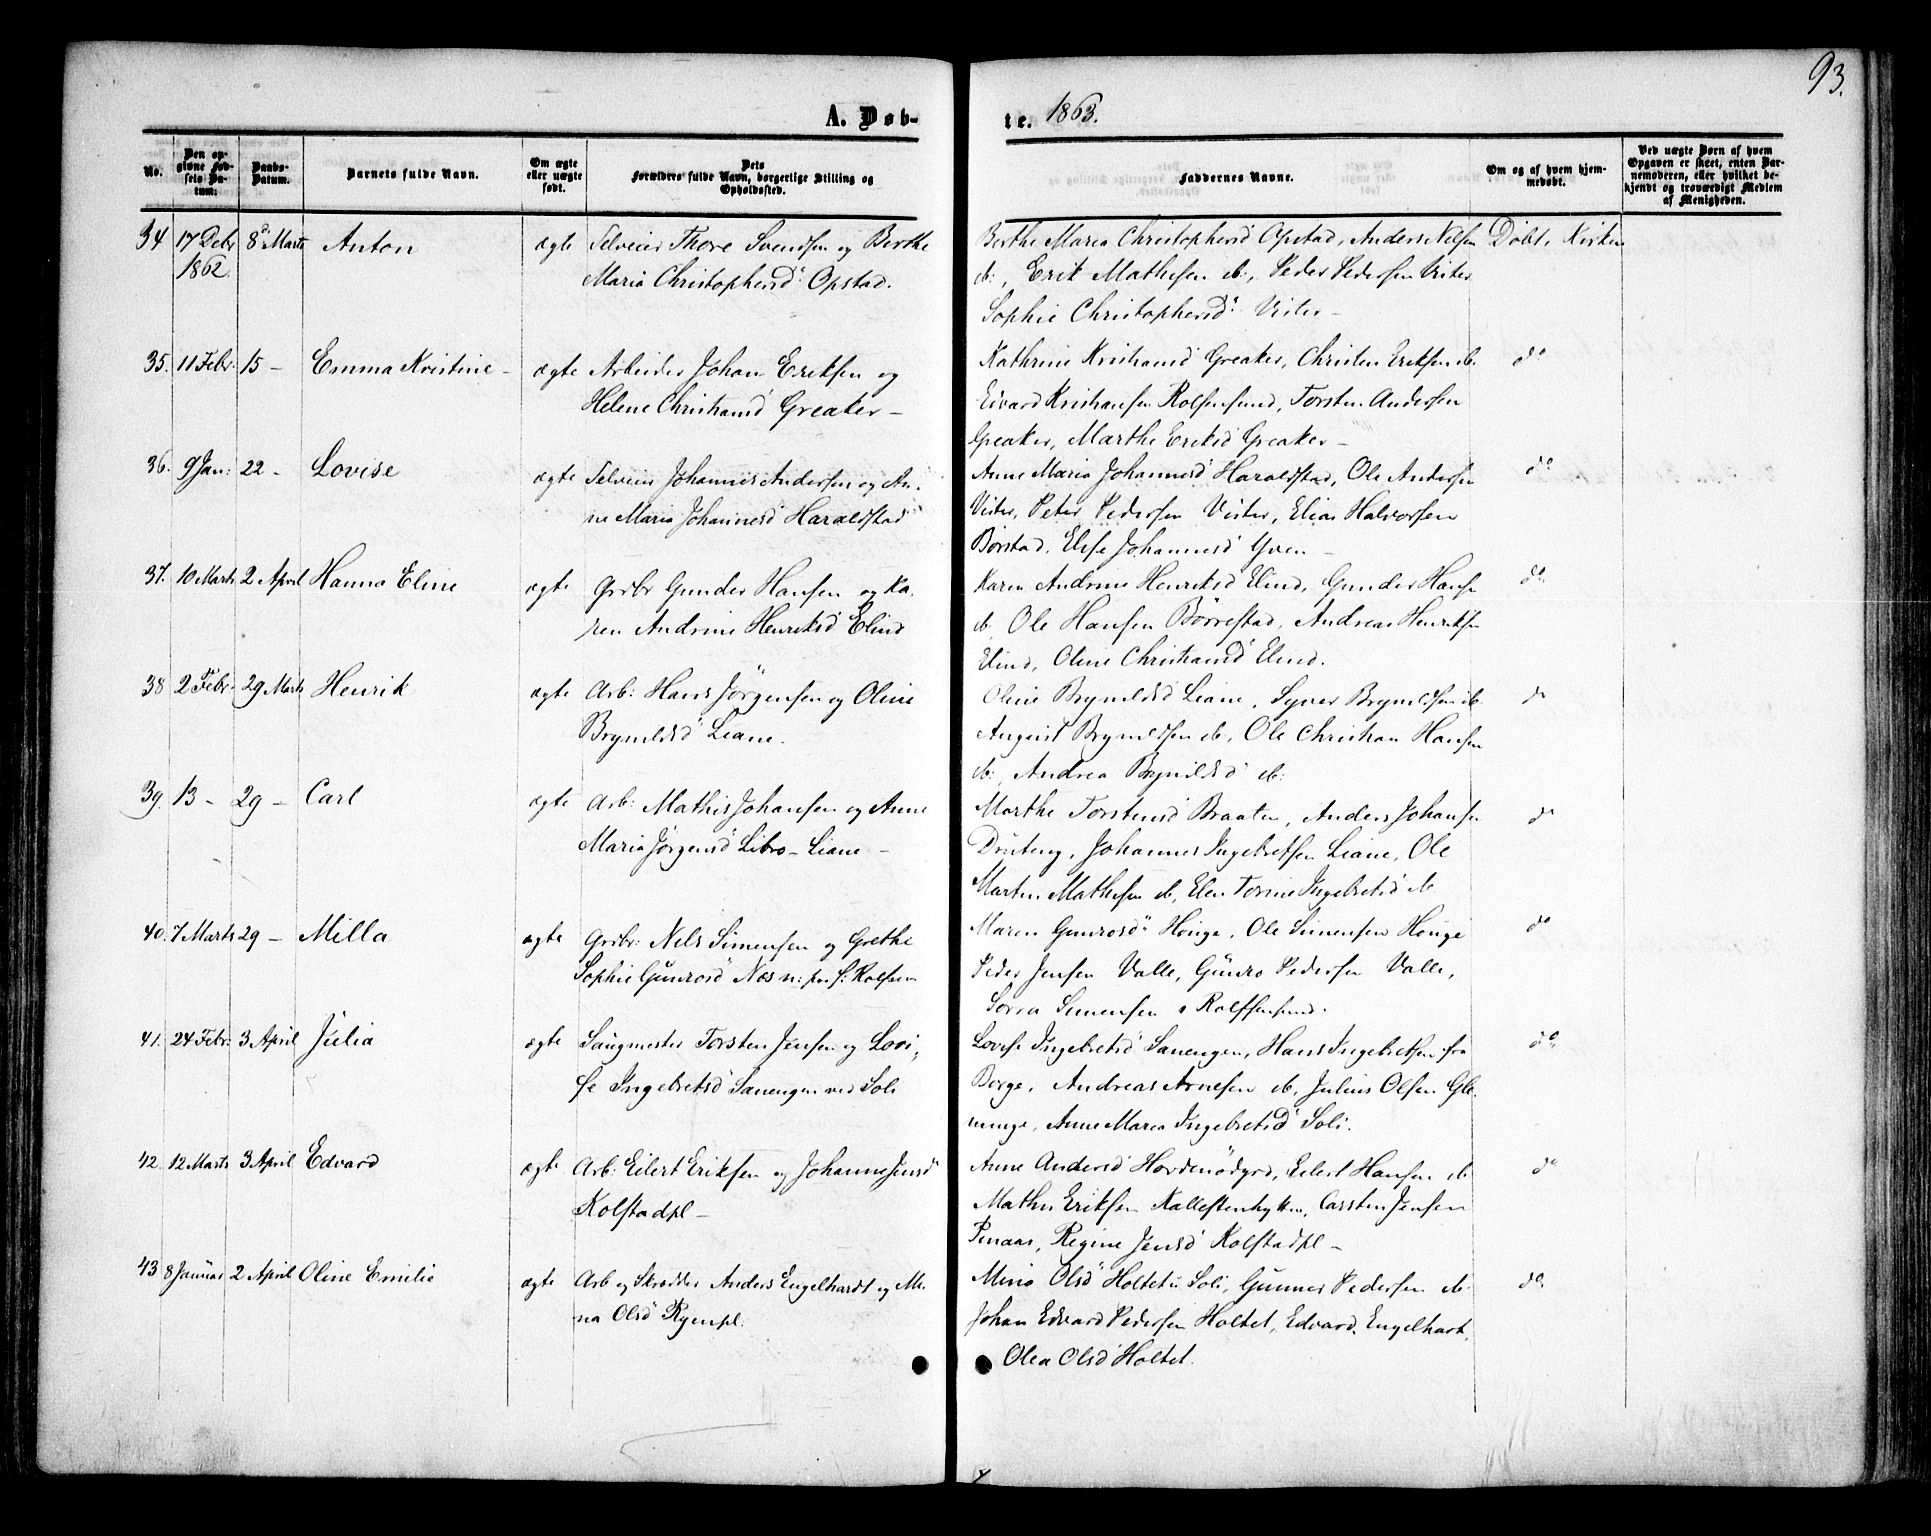 93.
A. Døb-
te. 1863.
No.
Den opgivne Fødsels Datum.
Daabs-Datum.
Barnets fulde Navn.
Om ægte eller uægte født.
Dets Forældres fulde Navn, borgerlige Stilling og Opholdssted.
Faddernes Navne.
Om og af hvem hjemmedøbt.
Ved uægte Børn af hvem Opgaven er skeet, enten Barnemoderen, eller hvilket bekjendt og troværdigt Medlem af Menigheden.
34 17 Debr 8d Marts Anton ægte Selveier Thore Svendsen og Berthe
1862. Maria Christophersd Opstad.
Berthe Maria Christophersd Opstad, Anders Nilsen Døbt i Kirken
ib:, Erik Mathesen ib:, Peder Pedersen Vister
Sophie Christophersd Vister –
35. 11 Febr. 15 – Emma Kristine – ægte Arbeider Johan Eriksen og
Helene Christiansd Greaker –
Kathrine Kristiansd Greaker, Christen Eriksen ib. do
Edvard Kristiansen Rolfsensund, Torsten Andersen
Greaker, Marthe Eriksd Greaker –
36. 9 Jan: 22 – Lovise ægte Selveier Johannes Andersen og An-
ne Maria Johannesd Haraldstad
Anne Maria Johannesd Haraldstad, Ole Andersen do
Vister, Peter Pedersen Vister, Elias Halvorsen
Børstad, Elise Johannesd Yven –
37. 10 Marts 2 April Hanna Eline ægte Grdbr Gunder Hansen og Ka-
ren Andrine Henriksd Elind
Karen Andrine Henriksd Elind, Gunder Hansen do
ib, Ole Hansen Børrestad, Andreas Henriksen
Elind, Oline Christiansd Elind.
38 2 Febr. 29 Marts Henrik ægte Arb: Hans Jørgensen og Oline
Brynildsd Liane.
Oline Brynildsd Liane, Syver Brynildsen ib. do
August Brynildsen ib, Ole Christian Hansen
ib:, Andrea Brynildsd ib:
39. 13 – 29 – Carl ægte Arb: Mathis Johansen og Anne
Maria Jørgensd Libro – Liane –
Marthe Torstensd Braaten, Anders Johansen do
Johannes Ingebretsen Liane, Ole
Martin Mathisen ib, Elen Torine Ingebretsd ib
40. 7 Marts 29 – Milla ægte Grdbr: Nels Simensen og Grethe
Sophie Gunrosd Næs
Maren Gunrosd Hauge, Ole Simensen Hauge do
Peder Jensen Valle, Gunro Pedersen Valle,
Simensen Rolffsensund.
41. 24 Febr: 3 April Julia ægte Saugmester Torsten Jensen og Lovi-
se Ingebretsd Sanengen ved Soli
Lovise Ingebretsd Sanengen, Hans Ingebretsen fra do
Borge, Andreas Arnesen ib, Julius Olsen Gle-
minge, Anne Maria Ingebretsd Soli.
42. 12 Marts 3 April Edvard ægte Arb: Eilert Eriksen og Johanne Jensd
Kolstadpl –
Anne Andersd Eilert Hansen ib do
Mathis Eriksen Carsten Jensen
Regine Jensd Kolstadpl –
43 8 Januar 2 April Oline Emilie ægte Arb og Skrædder Anders Engelhardt og Mi-
na Olsd Ryenpl.
Mina Olsd Holtet i Soli, Gunner Pedersen ib. do.
Johan Edvard Pedersen Holtet, Edvard Engelhart,
Olea Olsd Holtet.